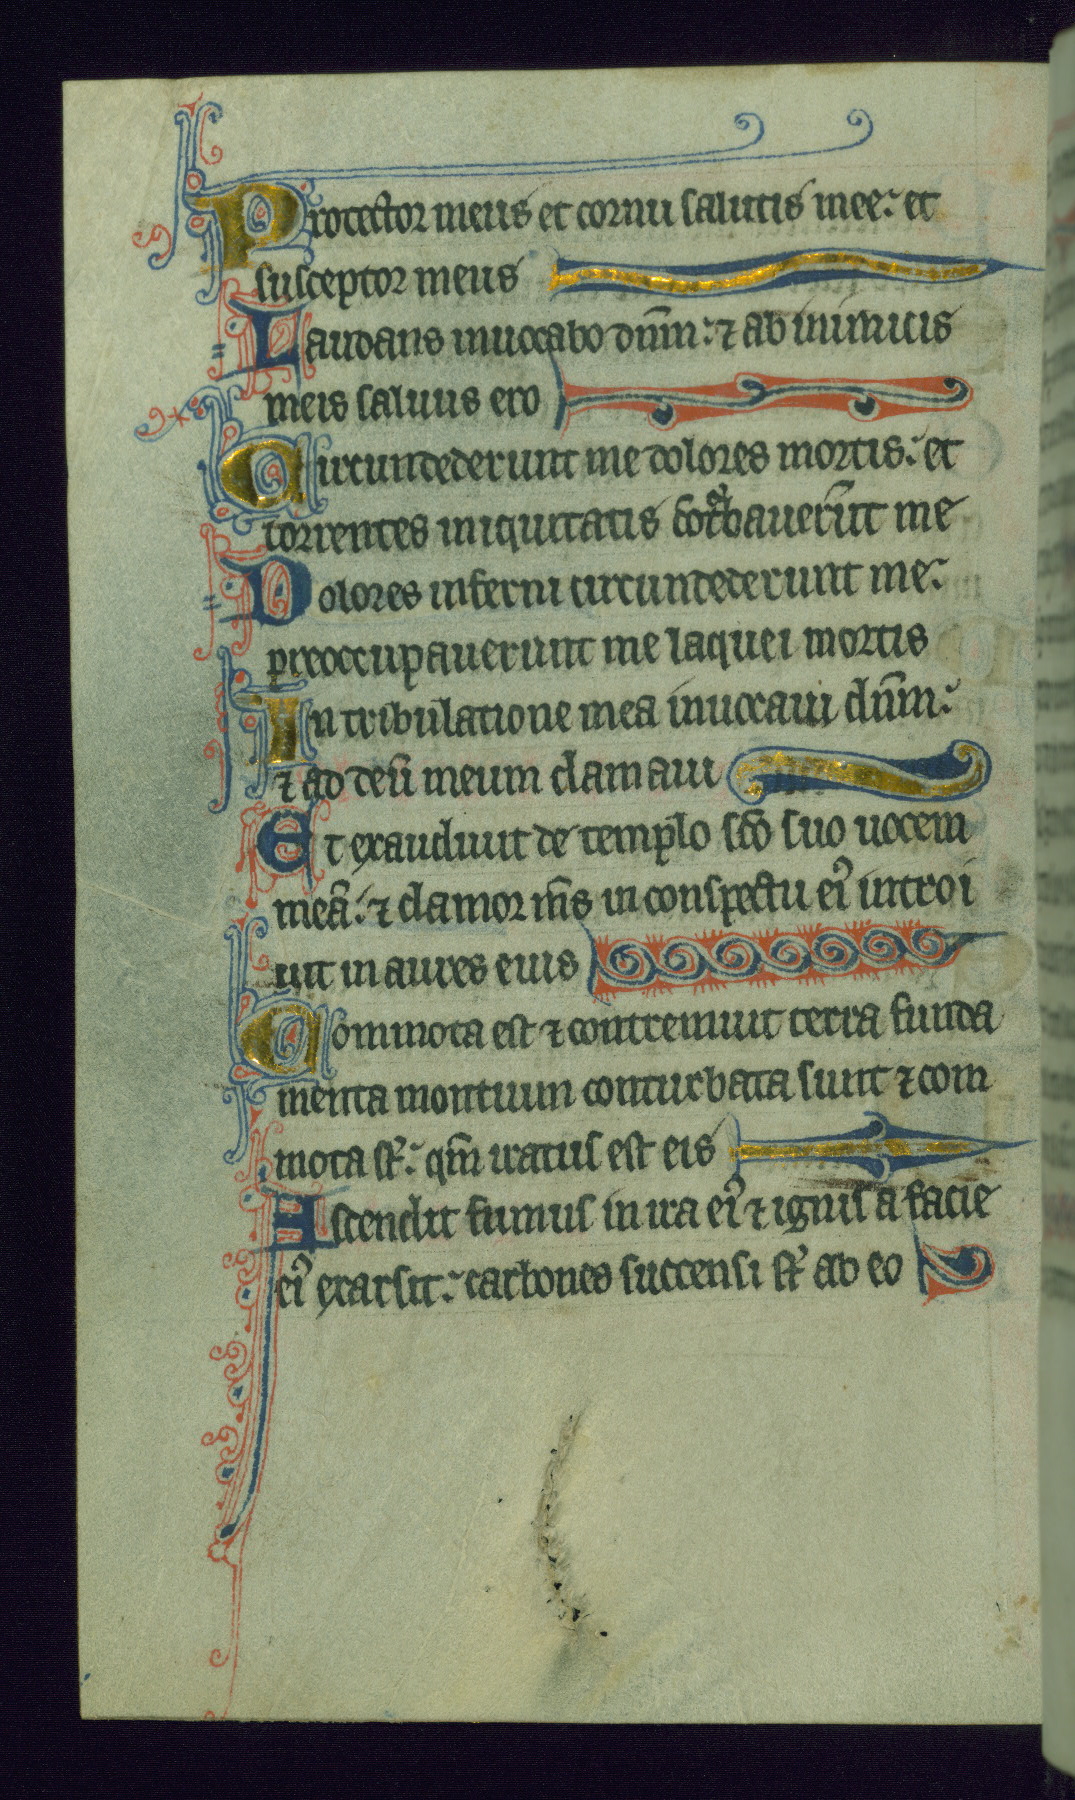 Protector meus et cornu salutis mee: et
susceptor meus
Laudans inuocabo dn̄m: ⁊ ab inimicis
meis saluus ero
Circundederunt me dolores mortis: et
torrentes iniquitatis me
Dolores inferni circundederunt me:
preoccupauerunt me laquei mortis
In tribulatione mea inuocaui dn̄m:
⁊ ad deū meum clamaui
Et exaudiuit de templo sc̄o suo uocem
meā: ⁊ clamor m̄s in conspectu eiꝰ introi
uit in aures euis
Commota est ⁊ contremuit terra funda
menta montium conturbata sunt ⁊ com
mota st̄: qm̄ iratus est eis
Ascendit fumus in ira eiꝰ ⁊ ignis a facie
eiꝰ exarsit: carbones succensi st̄ ab eo